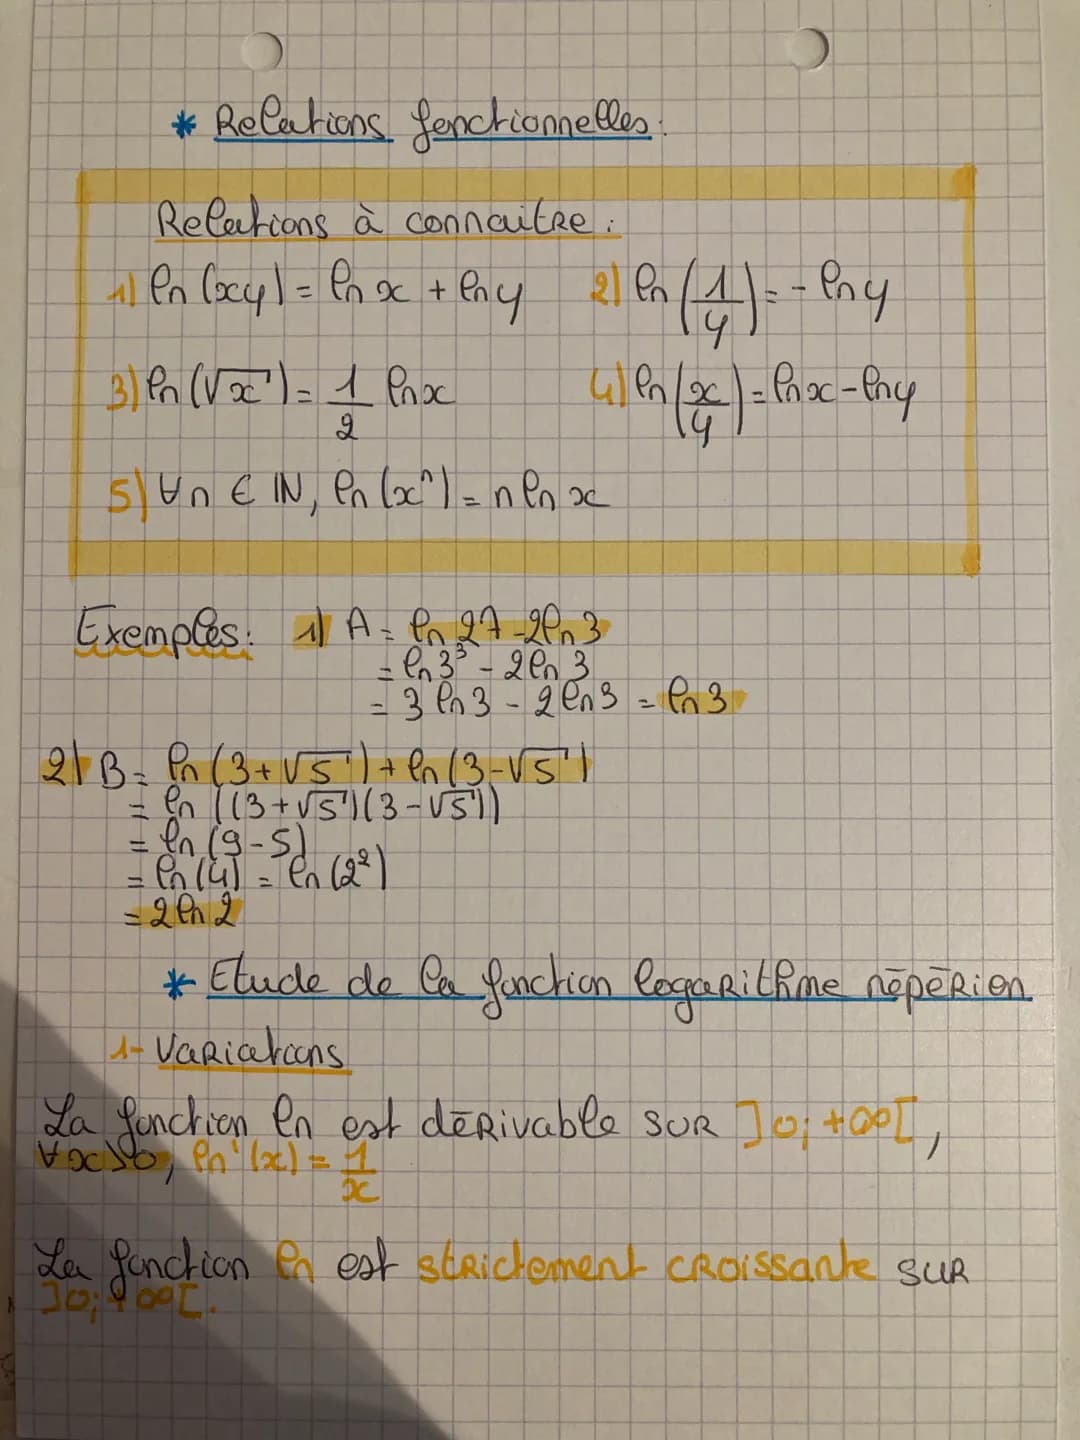 * Relations fonctionnelles:
Relations à connaitre :
1) ln (xy) = ln x + ln y 2) ln (1/y) = - ln y
3) ln (√x) = 1/2 ln x 4) ln (x/y) = ln x - ln y
5) ∀n ∈ IN, ln (xⁿ) = n ln x
Exemples: 1) A = ln 27 - 2ln 3
= ln 3³ - 2ln 3
= 3 ln 3 - 2 ln 3 = ln 3
2) B = ln (3+√5) + ln (3-√5)
= ln ((3+√5)(3-√5))
= ln (9-5)
= ln (4) = ln (2²)
= 2 ln 2
* Etude de la fonction logarithme népérien
1- Variations
La fonction ln est dérivable sur ]0; +∞[,
∀x>0, ln'(x) = 1/x
La fonction ln est strictement croissante sur
]0; +∞[.